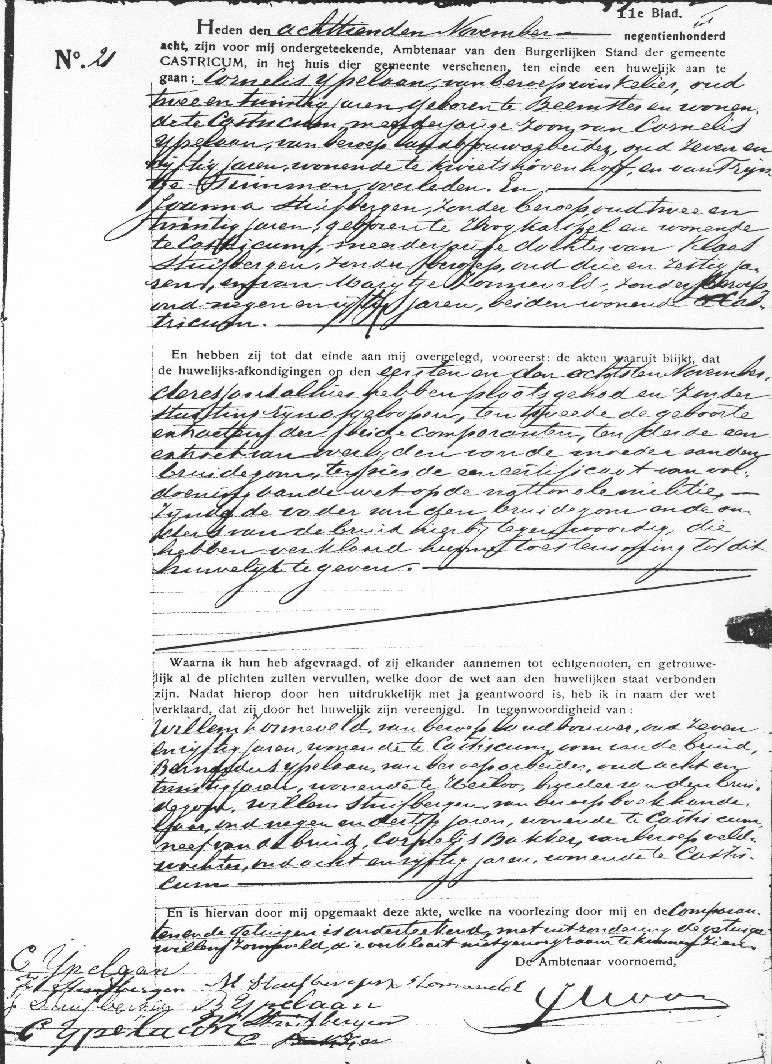 11e Blad.
Heden den achttienden November
negentienhonderd
No. 21
acht, zijn voor mij ondergeteekende, Ambtenaar van den Burgerlijken Stand der gemeente
CASTRICUM, in het huis dier gemeente verschenen, ten einde een huwelijk aan te
gaan: Cornelis Ypelaan, van beroep winkelier, oud
twee en twintig jaren, geboren te Beemster en wonen
de te Castricum, meerderjarige zoon van Cornelis
Ypelaan, van beroep landbouwarbeider, oud zeven en
vijftig jaren, wonende te en van Trijn
tje overleden. En
Joanna Stuifbergen, zonder beroep oud twee en
twintig jaren, geboren te Hoogkarspel en wonende
te Castricum, meerderjarige dochter van Klaas
Stuifbergen, zonder beroep, oud drie en zestig ja
ren, en van Marijtje Zonneveld, zonder beroep
oud negen en vijftig jaren, beiden wonende te Cas-
tricum.
En hebben zij tot dat einde aan mij overgelegd, vooreerst: de akten waaruit blijkt, dat
de huwelijks-afkondigingen op den eersten en den achtsten November
dezes jaars alhier hebben plaats gehad en zonder
stuiting zijn afgeloopen, ten tweede de geboorte
extracten der beide comparanten, ten derde een
extract van overlijden van de moeder van den
bruidegom, ten vierde een certificaat van vol-
doening aan de wet op de nationale militie,
Zijnde de vader van den bruidegom en de ou
ders van de bruid hierbij tegenwoordig, die
hebben verklaard hunne toestemming tot dit
huwelijk te geven.
Waarna ik hun heb afgevraagd, of zij elkander aannemen tot echtgenooten, en getrouwe-
lijk al de plichten zullen vervullen, welke door de wet aan den huwelijken staat verbonden
zijn. Nadat hierop door hen uitdrukkelijk met ja geantwoord is, heb ik in naam der wet
verklaard, dat zij door het huwelijk zijn vereenigd. In tegenwoordigheid van:
Willem Zonneveld, van beroep landbouwer, oud zeven
en vijftig jaren, wonende te Castricum, oom van de bruid,
Bernardus Ypelaan, van beroep arbeider, oud acht en
twintig jaren, wonende te Heiloo, broeder van den brui
degom, Willem Stuifbergen van beroep boekhande
laar, oud negen en dertig jaren, wonende te Castricum
neef van de bruid, Cornelis Bakker, van beroep veld-
wachter, oud acht en vijftig jaren, wonende te Castri-
cum
En is hiervan door mij opgemaakt deze akte, welke na voorlezing door mij en de Comparan
ten en de getuigen is onderteekend, met uitzondering de getuige
Willem Zonneveld, die verklaart niet genoegzaam te kunnen zien
De Ambtenaar voornoemd,
C Ypelaan
J Stuifbergen M Stuifbergen Zonneveld
Stuifbergen B Ypelaan
C Ypelaan W Stuifbergen
C Bakker